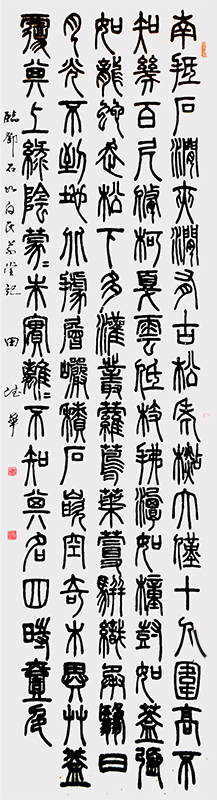 南抵石澗夾澗有古松老杉大僅十人圍高不
知幾百尺修柯戛雲低枝拂潭如幢豎如蓋張
如龍蛇走松下多灌叢蘿蔦葉蔓駢織承翳日
月光不到地北據層巘積石嵌空奇木異草蓋
覆其上綠陰蒙蒙朱實離離不知其名四時壹色
臨鄧石如白氏草堂記 田 華